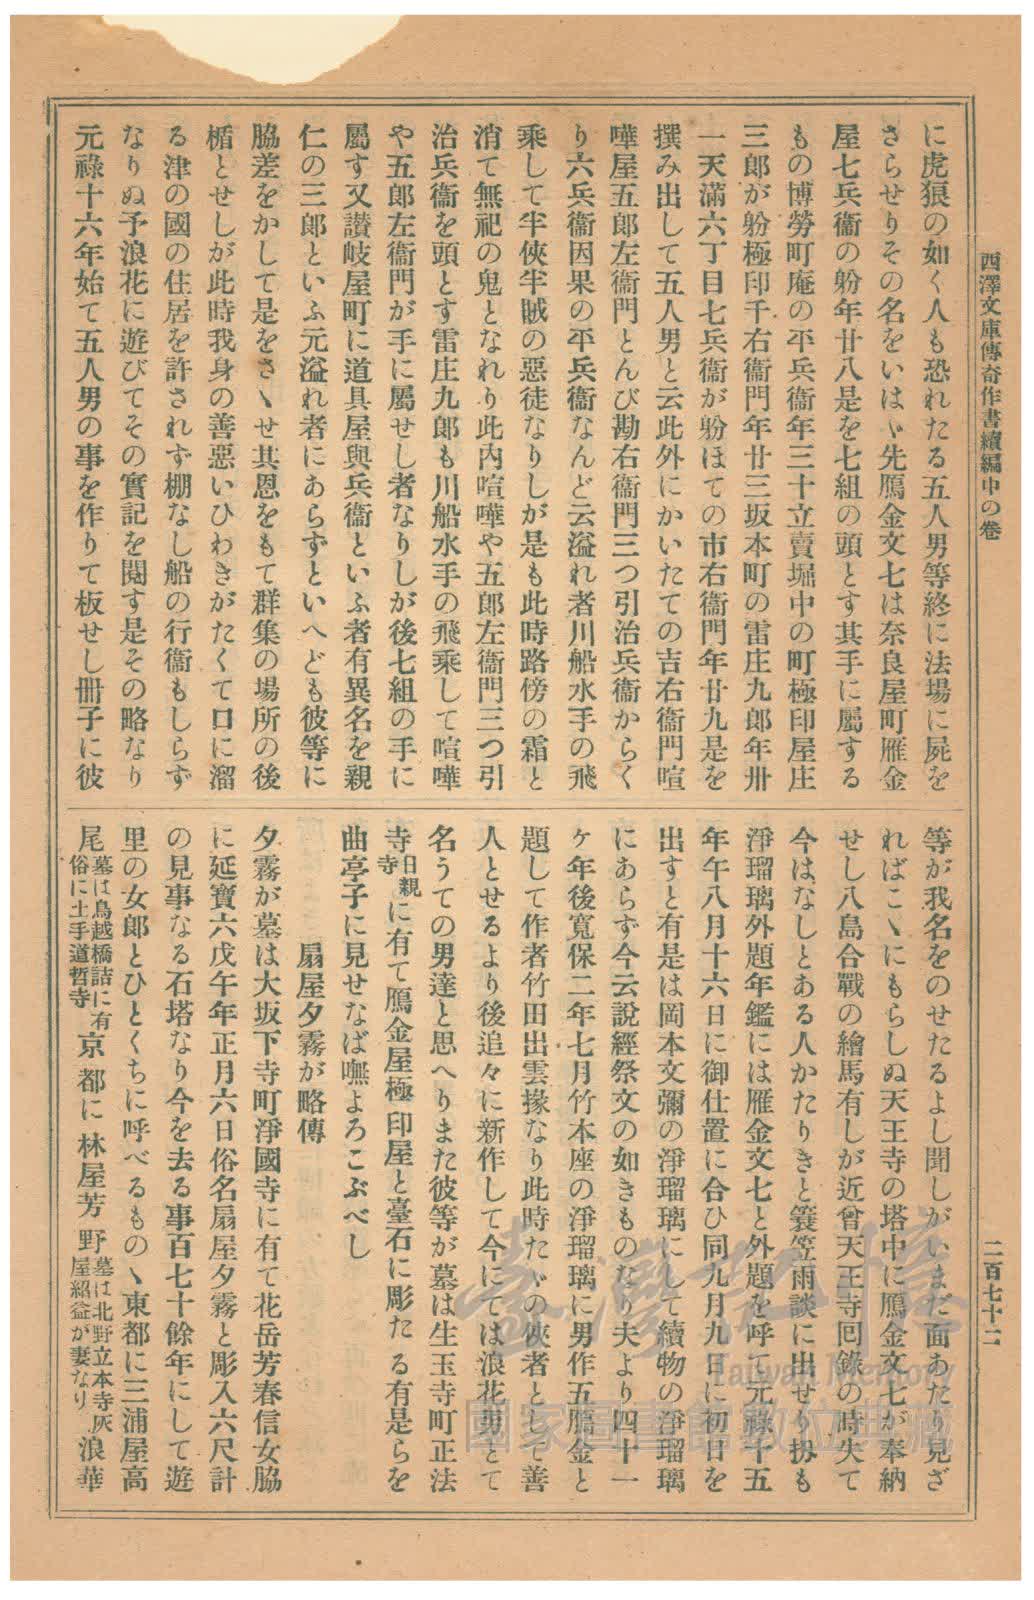 西澤文庫傳奇作書續編中の卷
二百七十二
に虎狼の如く人も恐れたる五人男等終に法場に屍を
さらせりその名をいはゞ先鴈金文七は奈良屋町雁金
屋七兵衞の躮年廿八是を七組の頭とす其手に屬する
もの博勞町庵の平兵衞年三十立賣堀中の町極印屋庄
三郎が躮極印千右衞門年廿三坂本町の雷庄九郎年卅
一天滿六丁目七兵衞が躮ほての市右衞門年廿九是を
撰み出して五人男と云此外にかいたての吉右衞門喧
嘩屋五郎左衞門とんび勘右衞門三つ引治兵衞からく
り六兵衞因果の平兵衞なんど云溢れ者川船水手の飛
乘して半俠半賊の惡徒なりしが是も此時路傍の霜と
消て無祀の鬼となれり此内喧嘩や五郎左衞門三つ引
治兵衞を頭とす雷庄九郎も川船水手の飛乘して喧嘩
や五郎左衞門が手に屬せし者なりしが後七組の手に
屬す又讃岐屋町に道具屋與兵衞といふ者有異名を親
仁の三郎といふ元溢れ者にあらずといへども彼等に
脇差をかして是をさゝせ其恩をもて群集の場所の後
楯とせしが此時我身の善惡いひわきがたくて口に溜
る津の國の住居を許されず棚なし船の行衞もしらず
なりぬ予浪花に遊びてその實記を閲す是その略なり
元祿十六年始て五人男の事を作りて板せし冊子に彼
等が我名をのせたるよし聞しがいまだ面あたり見ざ
ればこゝにもらしぬ天王寺の塔中に鴈金文七が奉納
せし八島合戰の繪馬有しが近曾天王寺回錄の時失て
今はなしとある人かたりきと簑笠雨談に出せり扨も
淨瑠璃外題年鑑には雁金文七と外題を呼て元祿十五
年午八月十六日に御仕置に合ひ同九月九日に初日を
出すと有是は岡本文彌の淨瑠璃にして續物の淨瑠璃
にあらず今云說經祭文の如きものなり夫より四十一
ヶ年後寬保二年七月竹本座の淨瑠璃に男作五鴈金と
題して作者竹田出雲掾なり此時たゞの俠者として善
人とせるより後追々に新作して今にては浪花男とて
名うての男達と思へりまた彼等が墓は生玉寺町正法
寺日親寺に有て鴈金屋極印屋と臺石に彫たる有是らを
曲亭子に見せなば嘸よろこぶべし
扇屋夕霧が略傳
夕霧が墓は大坂下寺町淨國寺に有て花岳芳春信女脇
に延寶六戊午年正月六日俗名扇屋夕霧と彫入六尺計
の見事なる石塔なり今を去る事百七十餘年にして遊
里の女郎とひとくちに呼べるものゝ東都に三浦屋高
尾墓は鳥越橋詰に有俗に土手道哲寺京都に林屋芳野墓は北野立本寺灰屋紹益が妻なり浪華